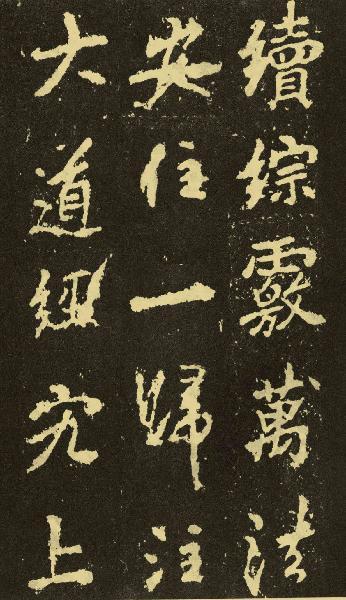 續綜覈萬法
安住一歸注
大道經究上